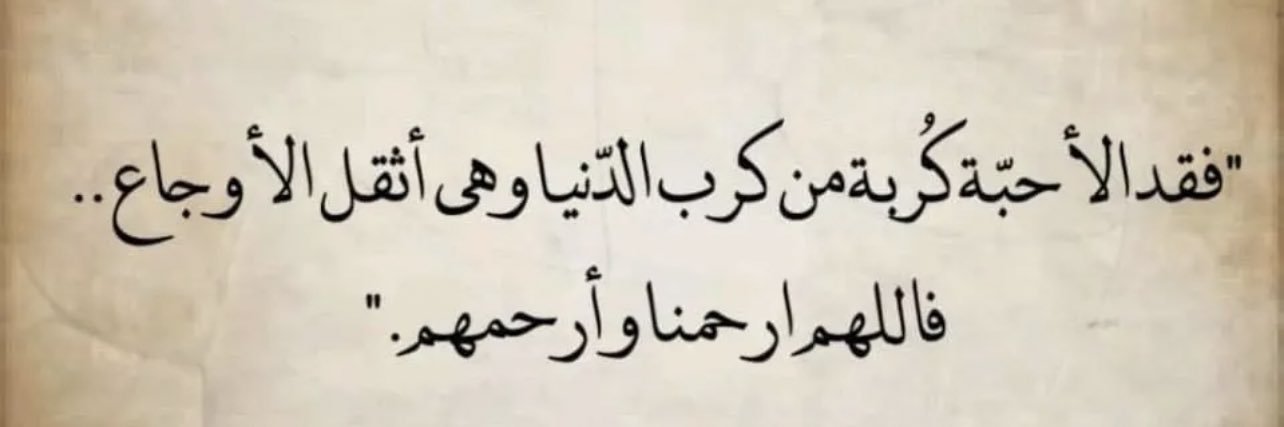 "فقد الأحبّة كُربة من كرب الدّنيا وهى أثقل الأوجاع..
فاللهم ارحمنا وأرحمهم."